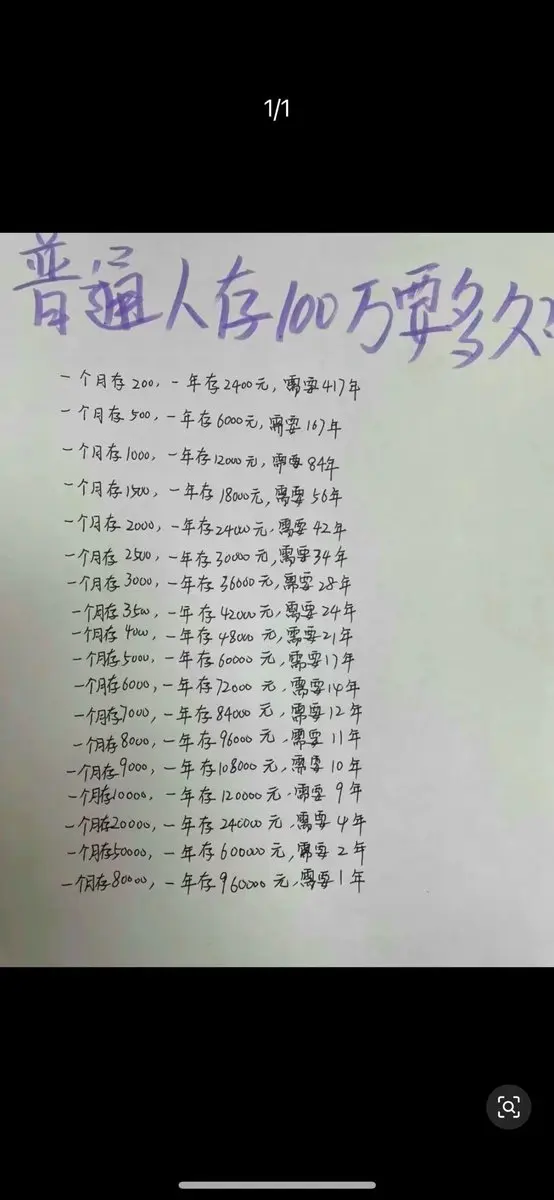 1/1
普通人存100万要多久
一个月存200,一年存2400元,需要417年
一个月存500,一年存6000元,需要167年
一个月存1000,一年存12000元,需要84年
一个月存1500,一年存18000元,需要56年
一个月存2000,一年存24000元,需要42年
一个月存2500,一年存30000元,需要34年
一个月存3000,一年存36000元,需要28年
一个月存3500,一年存42000元,需要24年
一个月存4000,一年存48000元,需要21年
一个月存5000,一年存60000元,需要17年
一个月存6000,一年存72000元,需要14年
一个月存7000,一年存84000元,需要12年
一个月存8000,一年存96000元,需要11年
一个月存9000,一年存108000元,需要10年
一个月存10000,一年存120000元,需要9年
一个月存20000,一年存240000元,需要4年
一个月存50000,一年存600000元,需要2年
一个月存80000,一年存960000元,需要1年